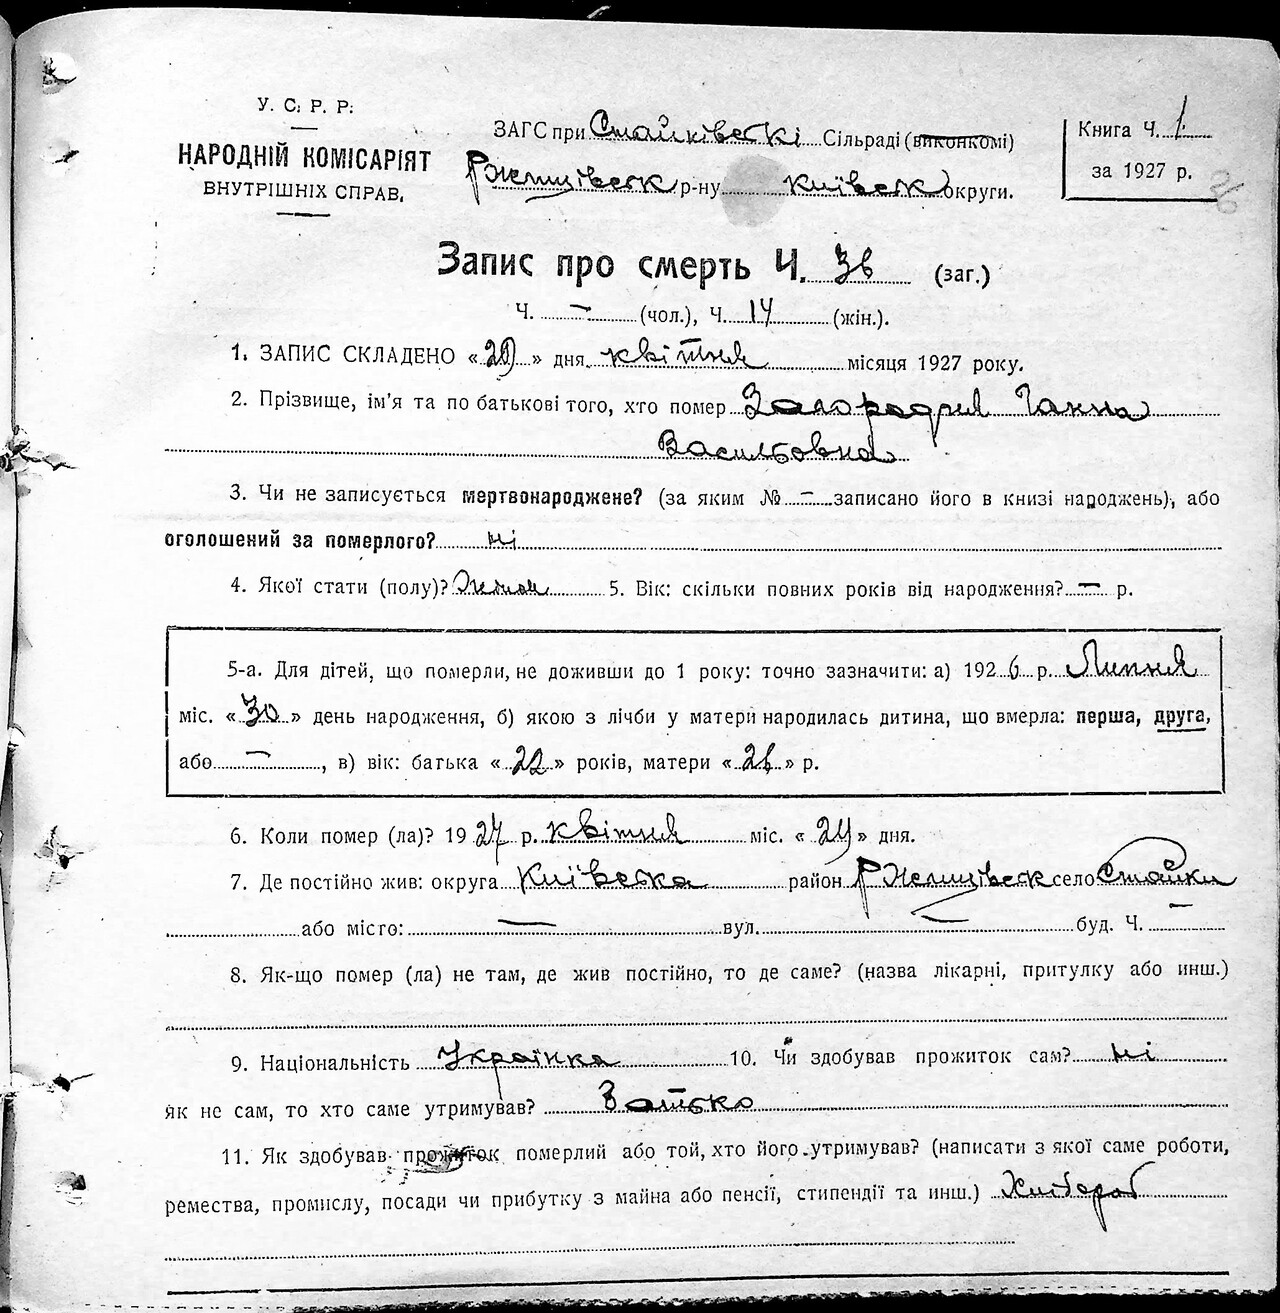 У. С. Р. Р.
НАРОДНІЙ КОМІСАРІЯТ
ВНУТРІШНІХ СПРАВ.
ЗАГС при Стайківські Сільраді (виконкомі)
Ржищівськ р-ну Київськ округи.
Книга Ч. 1
за 1927 р.
26
Запис про смерть Ч. 36 (заг.)
Ч. — (чол.), Ч. 14 (жін.).
1. ЗАПИС СКЛАДЕНО « 29 » дня квітня місяця 1927 року.
2. Прізвище, ім'я та по батькові того, хто помер Ганна
Васильовна
3. Чи не записується мертвонароджене? (за яким № — записано його в книзі народжень), або
оголошений за померлого? ні
4. Якої стати (полу)? 5. Вік: скільки повних років від народження? — р.
5-а. Для дітей, що померли, не доживши до 1 року: точно зазначити: а) 1926 р. Липня
міс. « 30 » день народження, б) якою з лічби у матери народилась дитина, що вмерла: перша, друга,
або — , в) вік: батька « 22 » років, матери « » р.
6. Коли помер (ла)? 1927 р. квітня міс. « 29 » дня.
7. Де постійно жив: округа Київська район Ржищівськ село Стайки
або місто: — вул. — буд. Ч. —
8. Як-що помер (ла) не там, де жив постійно, то де саме? (назва лікарні, притулку або инш.)
9. Національність Українка 10. Чи здобував прожиток сам? ні
як не сам, то хто саме утримував? Батько
11. Як здобував прожиток померлий або той, хто його утримував? (написати з якої саме роботи,
ремества, промислу, посади чи прибутку з майна або пенсії, стипендії та инш.) Хлібороб